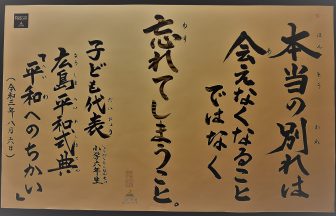 本当の別れは
会えなくなること
ではなく
忘れてしまうこと。
子ども代表
小学六年生
広島平和式典
「平和へのちかい」
（令和三年八月六日）